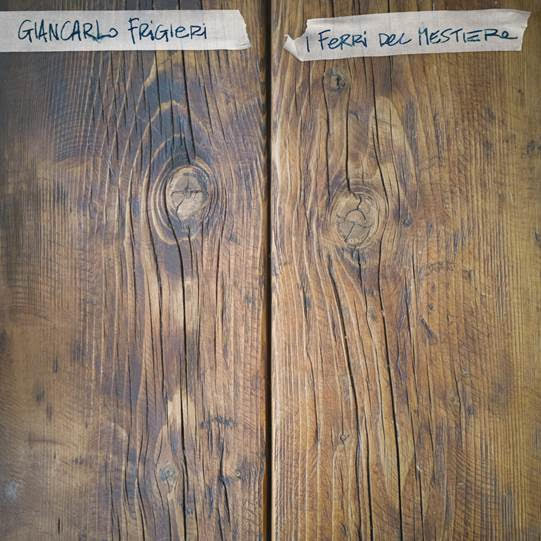 GIANCARLO FRIGIERI
I FERRI DEL MESTIERE